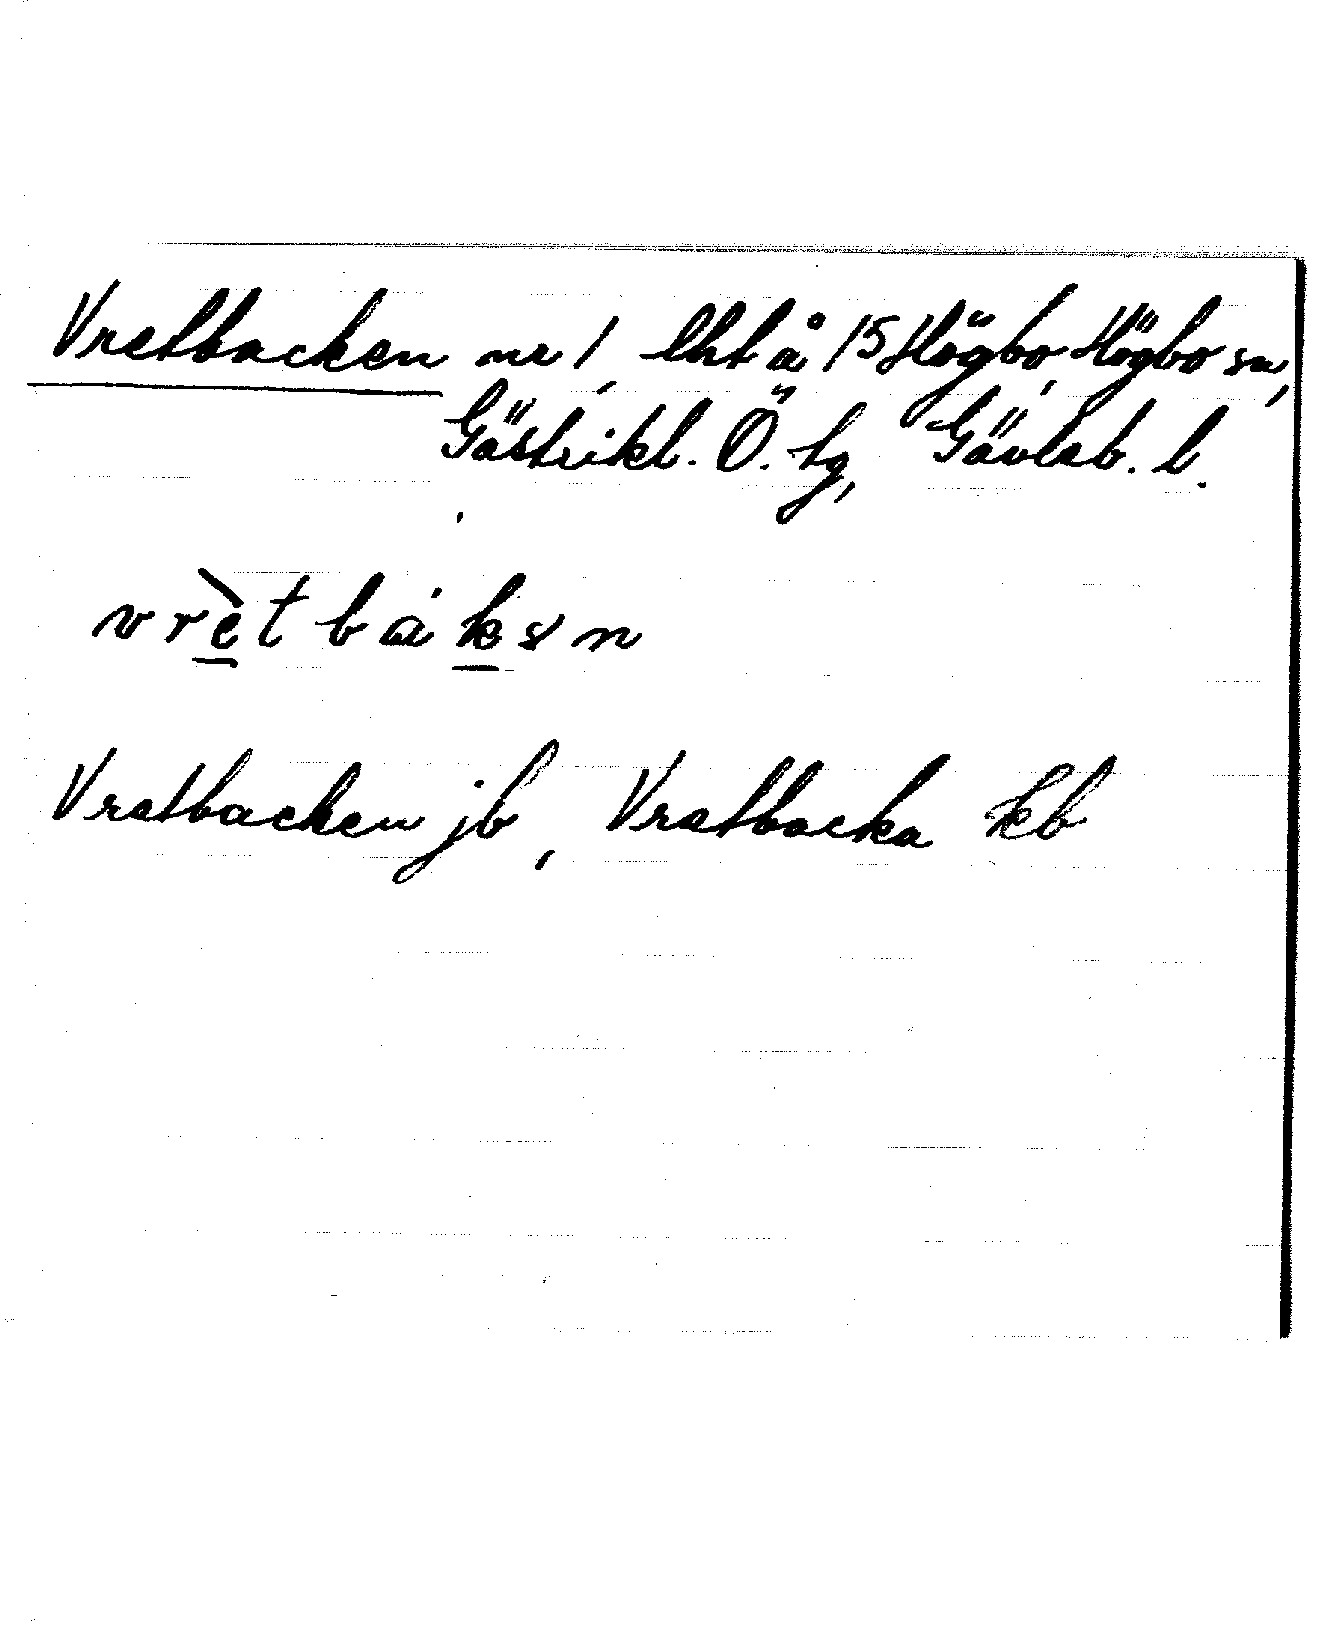 Vretbacken nr 1, lht å 15 Högbo, Högbo sn,
Gästrikl. Ö. tg, Gävleb. l.
vrètbákən
Vretbacken jb, Vretbacka kb